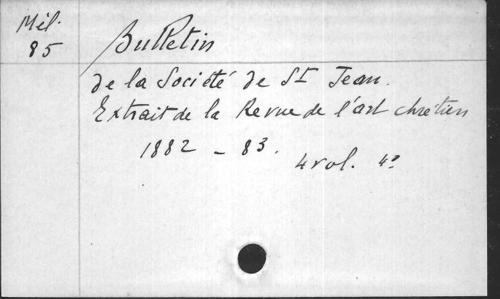 Mél. 85
Bulletin
de la Société de St Jean.
Extrait de la Revue de l'art chrétien
1882 - 83.
4 vol. 4°